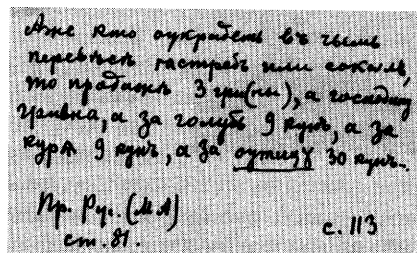 Аже кто оукрадеть въ чьемь
перевѣсѣ ястребъ или соколъ,
то продажѣ 3 грв(ны), а господину
гривна, а за голубь 9 кунъ, а за
курѧ 9 кунъ, а за оутицу 30 кунъ.
Пр. Рус. (М А)
ст. 81.
с. 113